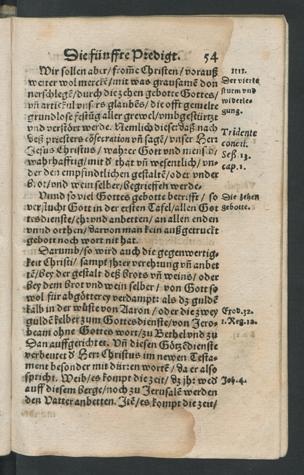 Die fünffte Predigt. 54
Wir sollen aber / from̃e Christen / vorauß
weiter wol mercke / mit was grausamẽ don
nerschlegẽ / durch die zehen gebotte Gottes /
vñ artickel vnsers glaubẽs / die offt gemelte
grundlose festũg aller grewel / vmbgestürtzt
vnd verstört werde. Nemlich diese / daß nach
deß priesters cõsecration vñ sagẽ / vnser Herr
Jesus Christus / wahrer Gott vnd mensch /
wahrhafftig / mit d' that vñ wesentlich / vn-
der den empfindtlichen gestaltẽ / oder vnder
brot / vnd wein selber / Begrieffen werde.
Vnnd so viel Gottes gebotte betrifft / so
verflucht Gott in der ersten Tafel / allen Got
tesdienste / ehr vnd anbetten / an allen enden
vnnd orthen / darvon man kein außgetruckt
gebott noch wort nit hat.
Darumb / so wird auch die gegenwertig-
keit Christi / sampt jhrer verehrung vñ anbet
tẽ / bey der gestalt deß brots vñ weins / oder
bey dem brot vnd wein selber / von Gott so
wol für abgötterey verdampt: als dz guldẽ
kalb in der wüste von Aaron / oder die zwey
guldẽ kelber zum Gottesdienste / von Jero-
beam ohne Gottes wort / zu Bethel vnd zu
Dan auffgerichtet. Vñ diesen Götzẽdienste
verbeutet d' Herr Christus im newen Testa-
ment besonder mit dürren wortẽ / da er also
spricht. Weib / es kompt die zeit / dz jhr wed'
auff diesem berge / noch zu Jerusalẽ werden
den Vatter anbetten. Itẽ / es kompt die zeit /
IIII.
Der vierte
sturm vnd
widerle-
gung.
Tridente
concil.
Seß. 13.
cap. 1.
Die zehen
gebotte.
Exod. 32.
1. Reg. 12.
Joh. 4.